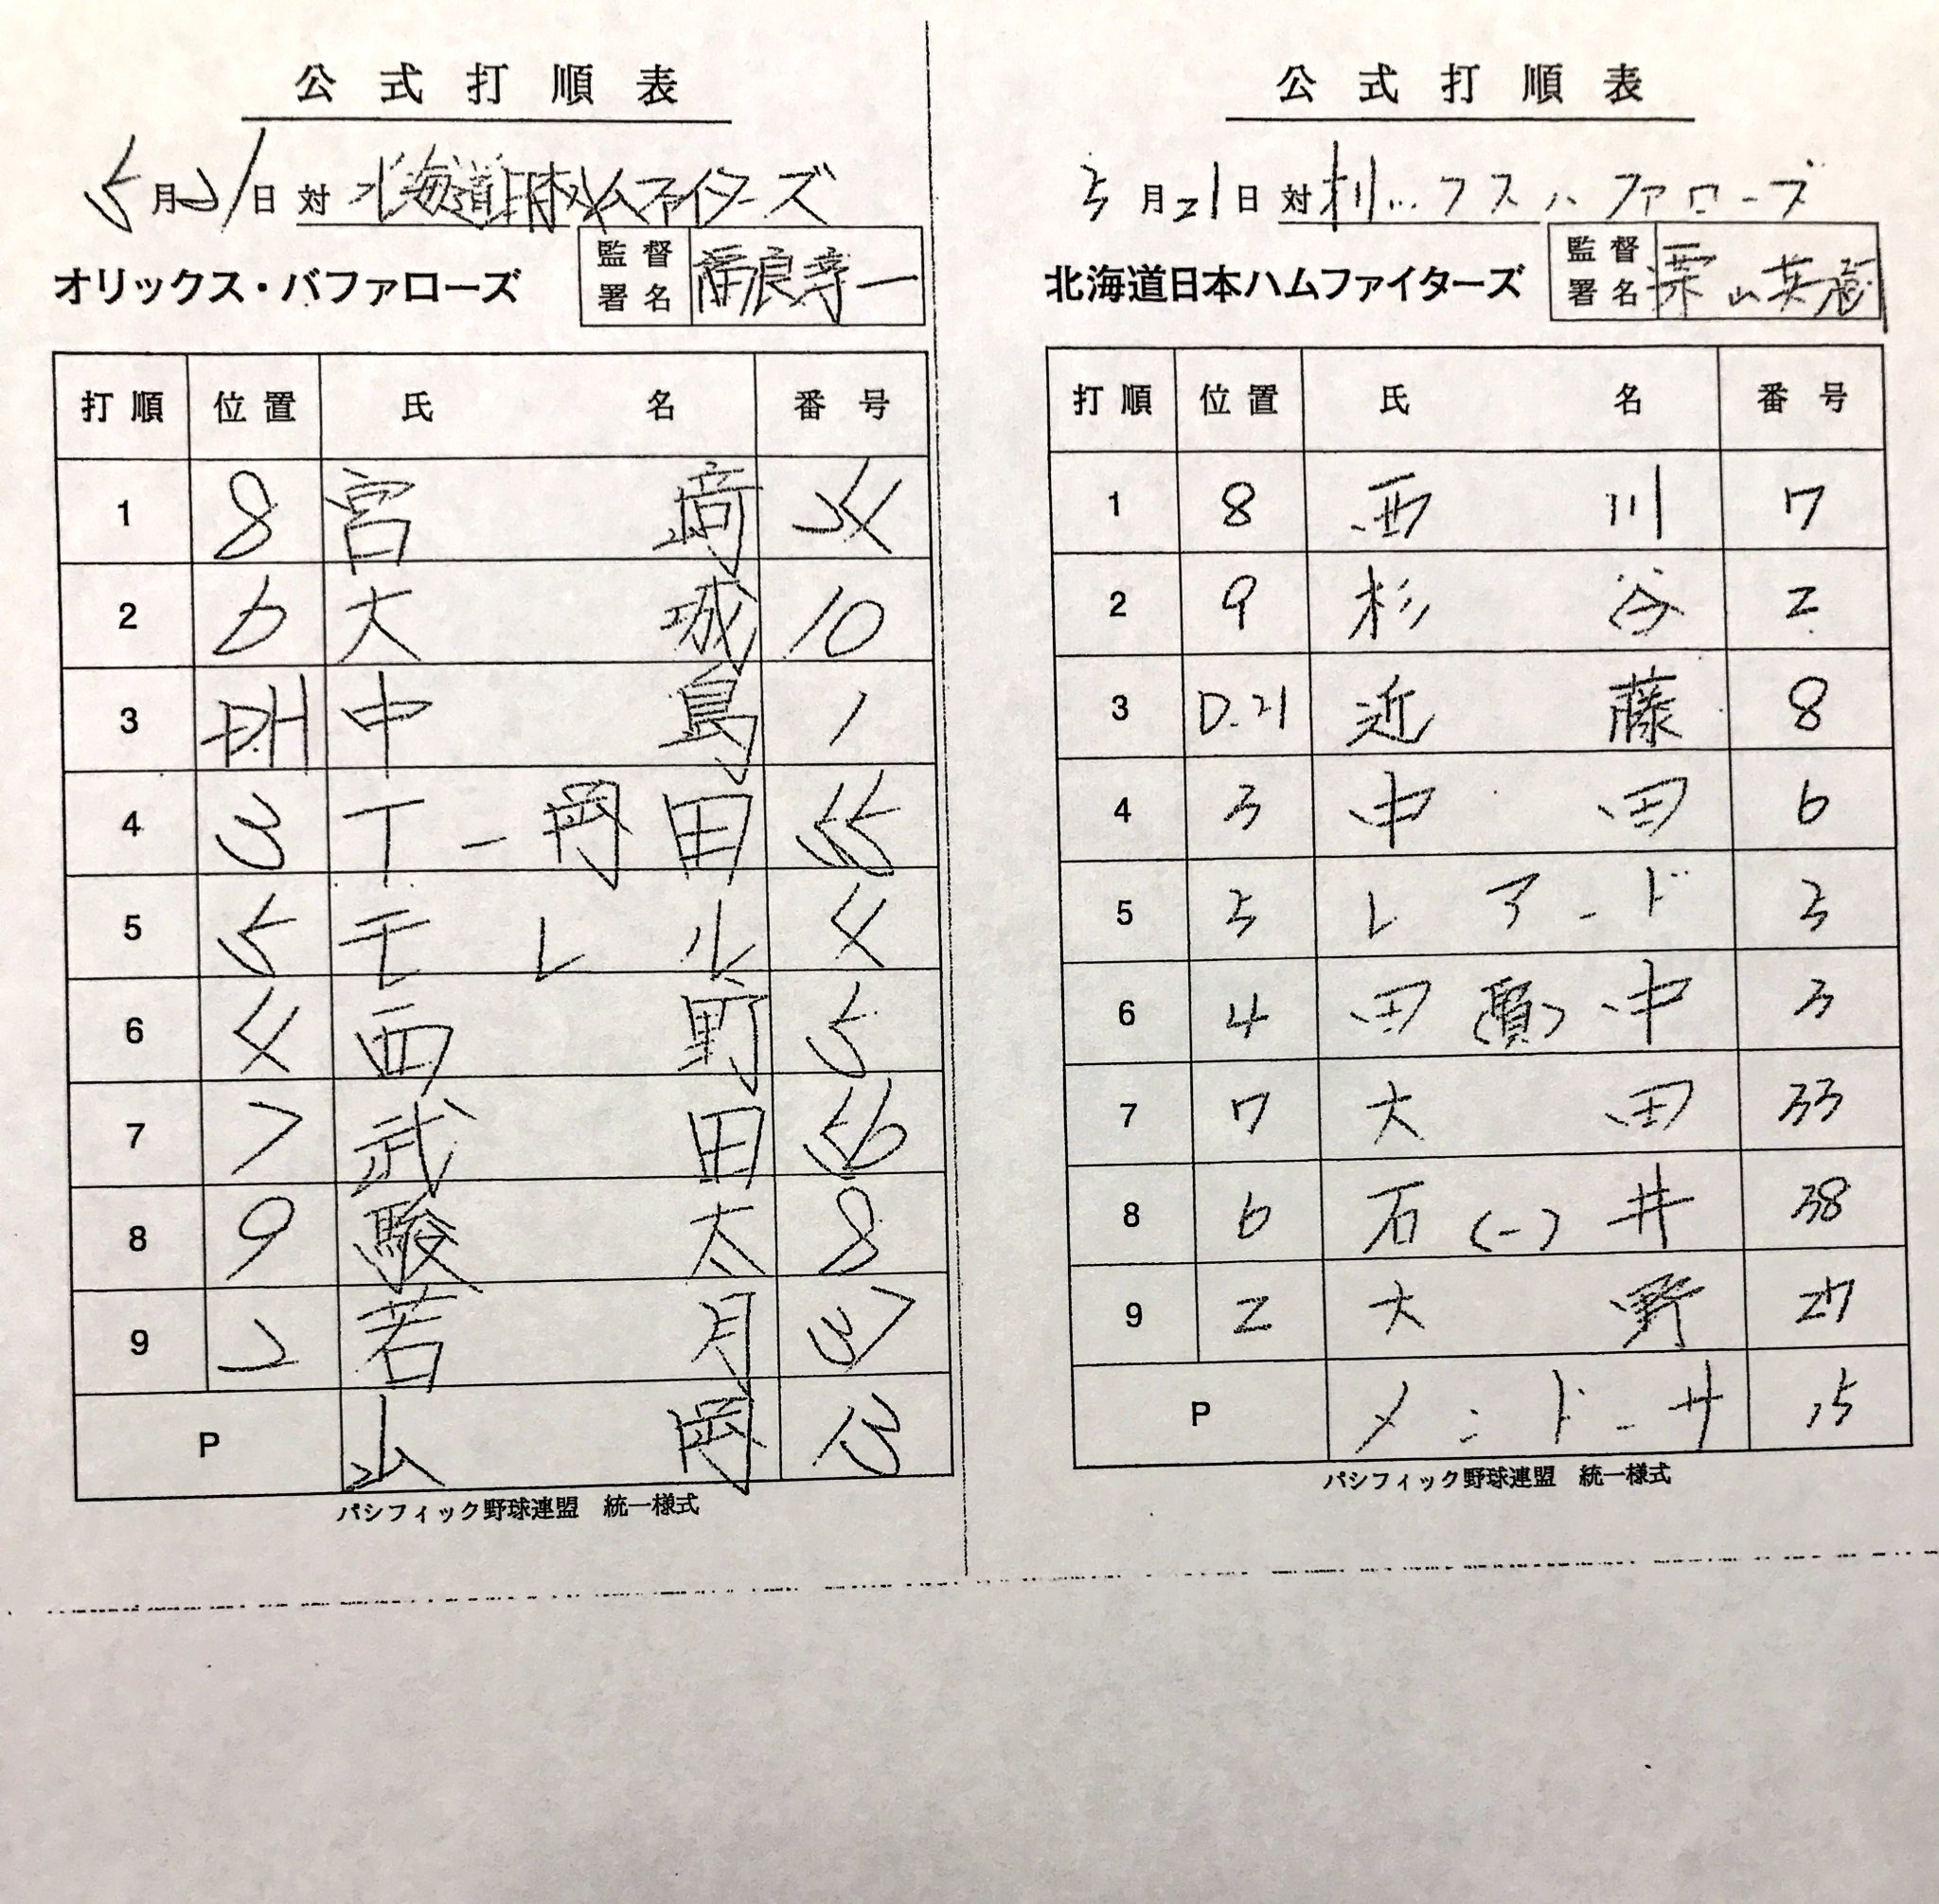 公式打順表
5月21日 対 北海道日本ハムファイターズ
オリックス・バファローズ 監督署名 福良淳一
打順 位置 氏名 番号
1 8 宮﨑 24
2 6 大城 10
3 D.H 中島 1
4 3 T-岡田 55
5 5 モレル 4
6 4 西野 5
7 7 武田 56
8 9 駿太 8
9 2 若月 37
P 山岡 13
パシフィック野球連盟 統一様式
公式打順表
5月21日 対 オリックスバファローズ
北海道日本ハムファイターズ 監督署名 栗山英樹
打順 位置 氏名 番号
1 8 西川 7
2 9 杉谷 2
3 D.H 近藤 8
4 3 中田 6
5 5 レアード 5
6 4 田(賢)中 3
7 7 大田 33
8 6 石(一)井 38
9 2 大野 27
P メンドーサ 15
パシフィック野球連盟 統一様式